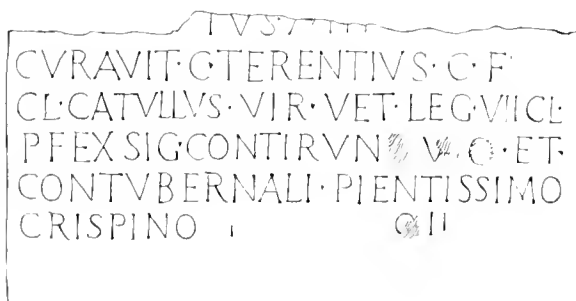 TVS
CVRAVIT·C·TERENTIVS·C·F
CL·CATVLLVS·VIR·VET·LEG·VII CL·
P F EX SIG·CONTIRVN V·O·ET·
CONTVBERNALI·PIENTISSIMO
CRISPINO